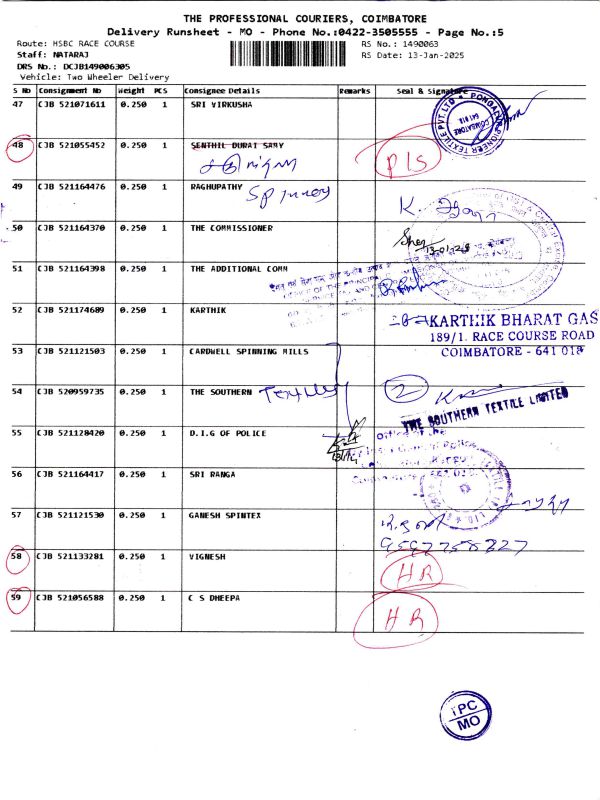 THE PROFESSIONAL COURIERS, COIMBATORE
Delivery Runsheet - MO - Phone No.:0422-3505555 - Page No.:5
Route: HSBC RACE COURSE
RS No.: 1490063
Staff: NATARAJ
RS Date: 13-Jan-2025
DRS No.: DCJB149006305
Vehicle: Two Wheeler Delivery
S No Consignment No Weight PCS Consignee Details Remarks Seal & Signature
47 CJB 521071611 0.250 1 SRI VIRKUSHA
PIONEER TEXTILE PVT. LTD
COIMBATORE
641 018
48 CJB 521055452 0.250 1 SENTHIL DURAI SAMY
PLS
49 CJB 521164476 0.250 1 RAGHUPATHY
K.
50 CJB 521164370 0.250 1 THE COMMISSIONER
51 CJB 521164398 0.250 1 THE ADDITIONAL COMM
52 CJB 521174689 0.250 1 KARTHIK
KARTHIK BHARAT GAS
189/1. RACE COURSE ROAD
COIMBATORE - 641 018
53 CJB 521121503 0.250 1 CARDWELL SPINNING MILLS
54 CJB 520959735 0.250 1 THE SOUTHERN Textiles
2
THE SOUTHERN TEXTILE LIMITED
55 CJB 521128420 0.250 1 D.I.G OF POLICE
Office of the
56 CJB 521164417 0.250 1 SRI RANGA
57 CJB 521121530 0.250 1 GANESH SPINTEX
58 CJB 521133281 0.250 1 VIGNESH
HR
59 CJB 521056588 0.250 1 C S DHEEPA
HR
TPC
MO